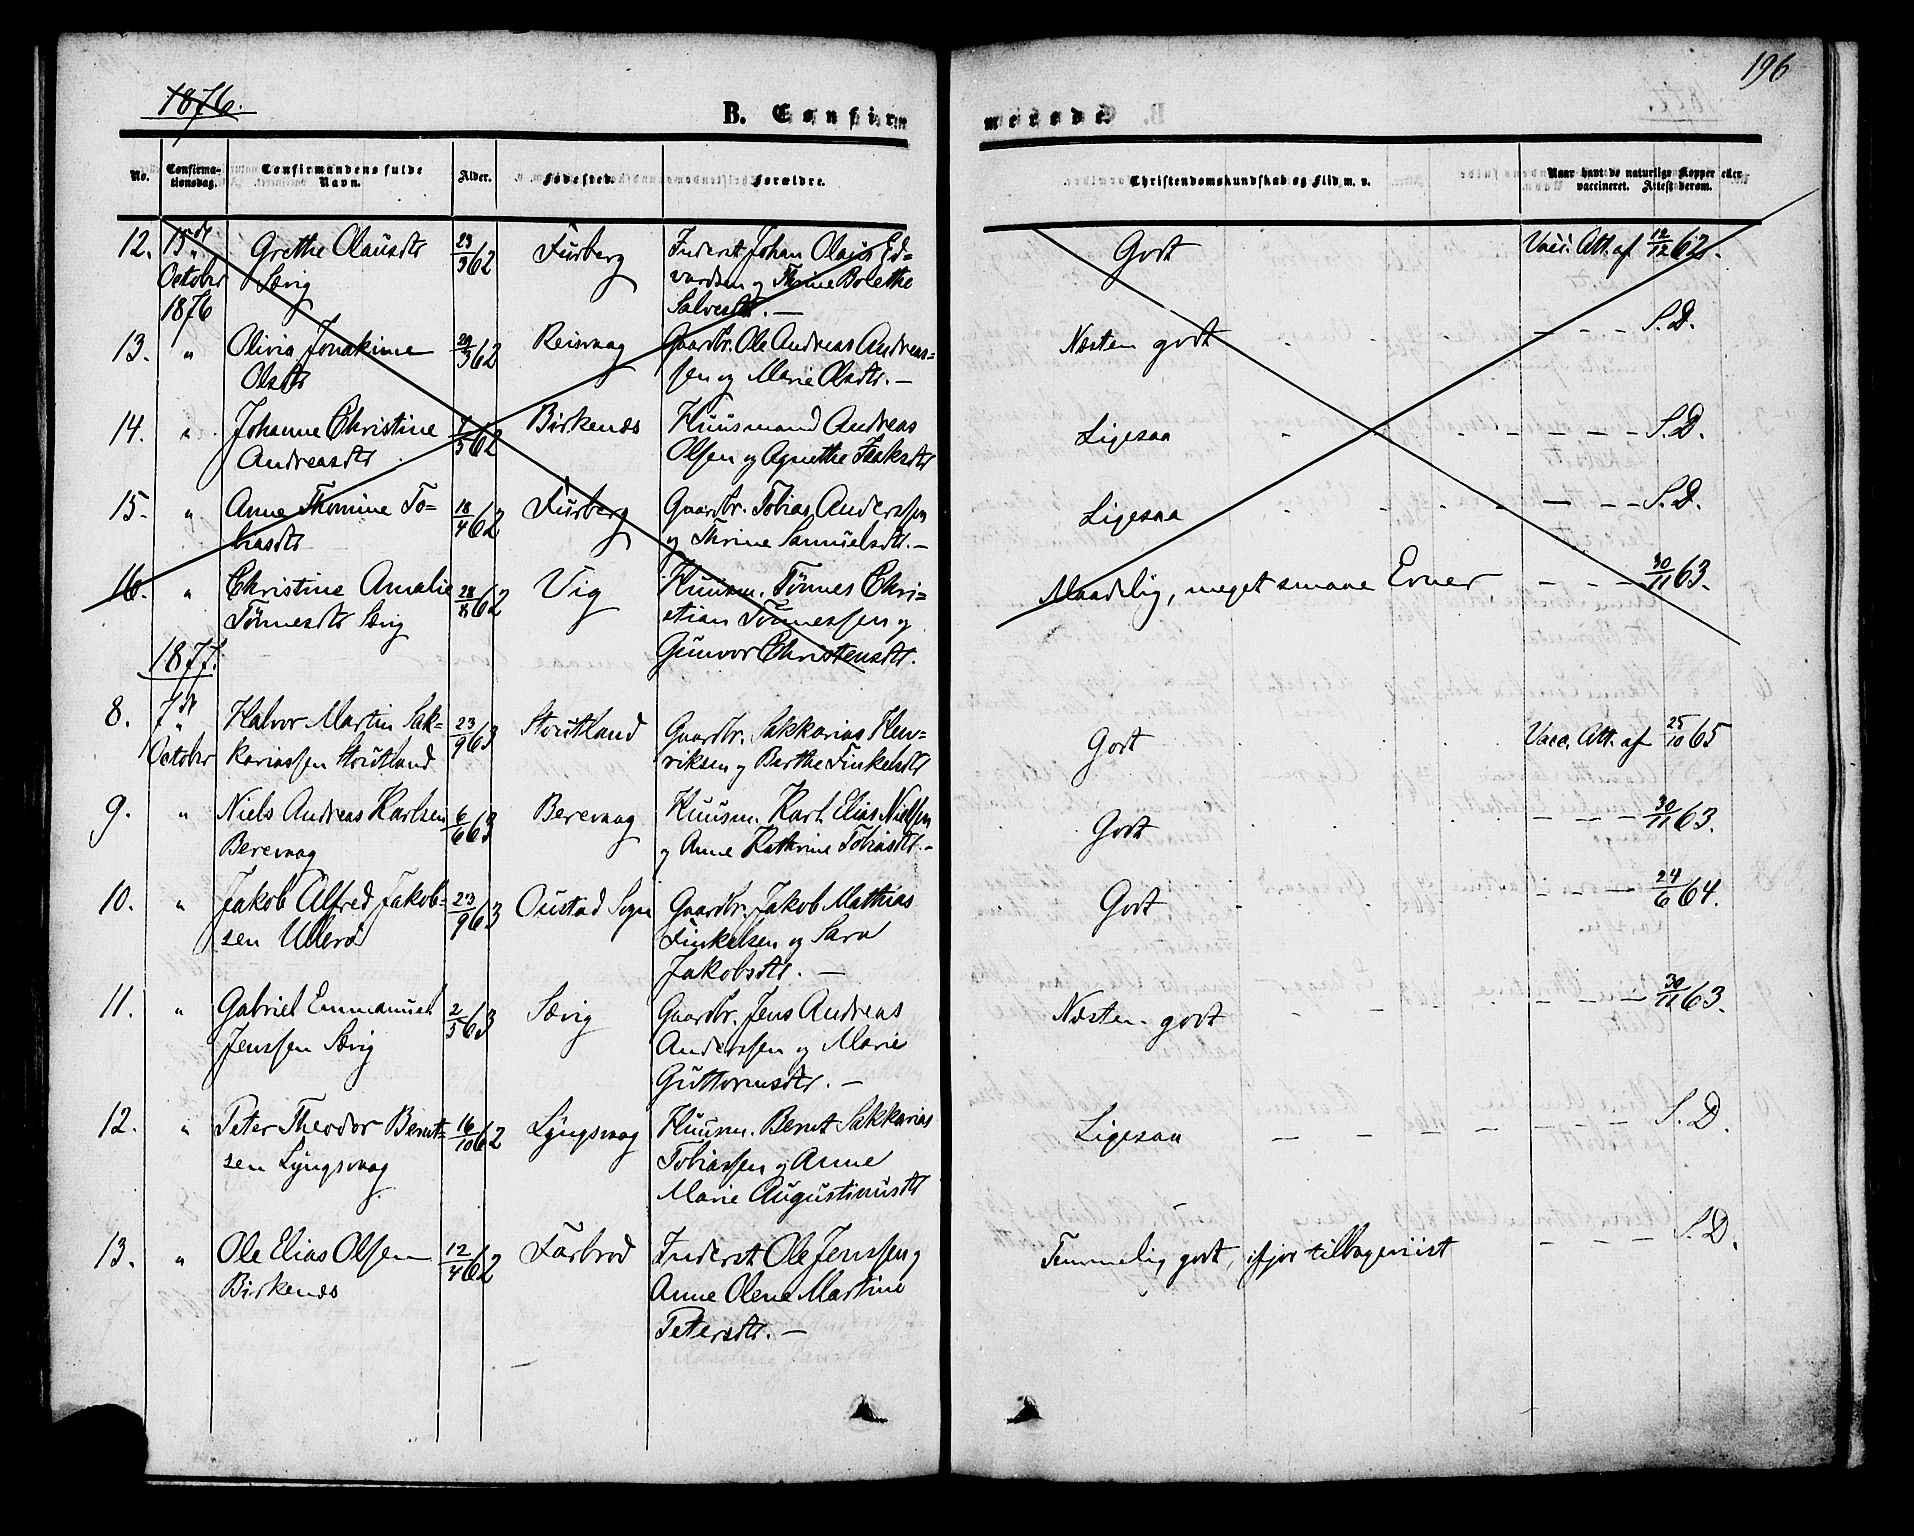 196
1876.
B. Confirmerede.
No.
Confirmationsdag.
Confirmandens fulde Navn.
Alder.
Fødested.
Forældre.
Christendomskundskab og Flid m. v.
Naar havt de naturlige Kopper eller vaccineret. Attest derom.
12. 15de October 1876 Grethe Olausdtr Sævig 23/3 62 Furberg Inderst Johan Olaus Edvardsen og Thrine Brethe Salvesdtr. — Godt Vacc. Att. af 12/12 62.
13. " Olivia Jonakime Olsdtr 29/3 62 Reisvaag Gaardbr. Ole Andreas Andreassen og Marie Olsdtr. — Næsten godt — — — S. D.
14. " Johanne Christine Andreasdtr 1/5 62 Birkenæs Huusmand Andreas Olsen og Agnethe Isaksdtr Ligesaa — — — S. D.
15. " Anne Thomine Tobiasdtr 18/4 62 Furberg Gaardbr. Tobias Anderssen og Thrine Samuelsdtr. — Ligesaa — — — S. D.
16. " Christine Amalie Tønnesdtr Sævig 28/8 62 Vig Huusm. Tønnes Christian Tønnessen og Gunvor Christensdtr. Maadelig, meget smaae Evner — — — 30/11 63.
1877.
8. 7de October Halvor Martin Sakkariassen Stoutland 23/9 63 Stoutland Gaardbr. Sakkarias Henriksen og Berthe Finkelsdtr Godt Vacc. Att. af 25/10 65
9. " Niels Andreas Karlsen Berevaag 6/6 63 Berevaag Huusm. Karl Elias Nielsen og Anne Kathrine Tobiasdtr. — Godt — — — 30/11 63.
10. " Jakob Alfred Jakobsen Ullerø 23/9 63 Oustad Sogn Gaardbr. Jakob Mathias Finkelsen og Sara Jakobsdtr. — Godt — — — 24/6 64.
11. " Gabriel Emmanuel Jenssen Sævig 2/5 63 Sævig Gaardbr. Jens Andreas Anderssen og Marie Guttormsdtr. — Næsten godt — — — 30/11 63.
12. " Peter Theodor Berntsen Lyngsvaag 16/10 62 Lyngsvaag Huusm. Bernt Sakkarias Tobiassen og Anne Marie Augustinusdtr Ligesaa — — — S. D.
13. " Ole Elias Olsen Birkenæs 12/4 62 Farbrod Inderst Ole Jenssen og Anne Olene Martine Petersdtr. — Temmelig godt, ifjor tilbageviist — — — S. D.